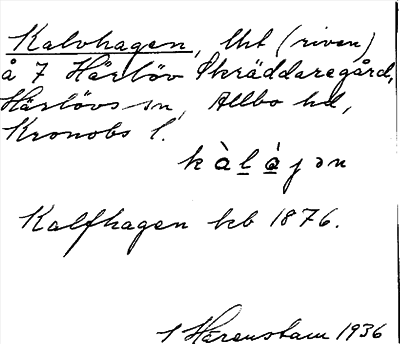 Kalvhagen, lht (riven)
å 7 Härlöv Skräddaregård,
Härlövs sn, Allbo hd,
Kronobs l.
k à l á j ə n
Kalfhagen kb 1876.
Härenstam 1936